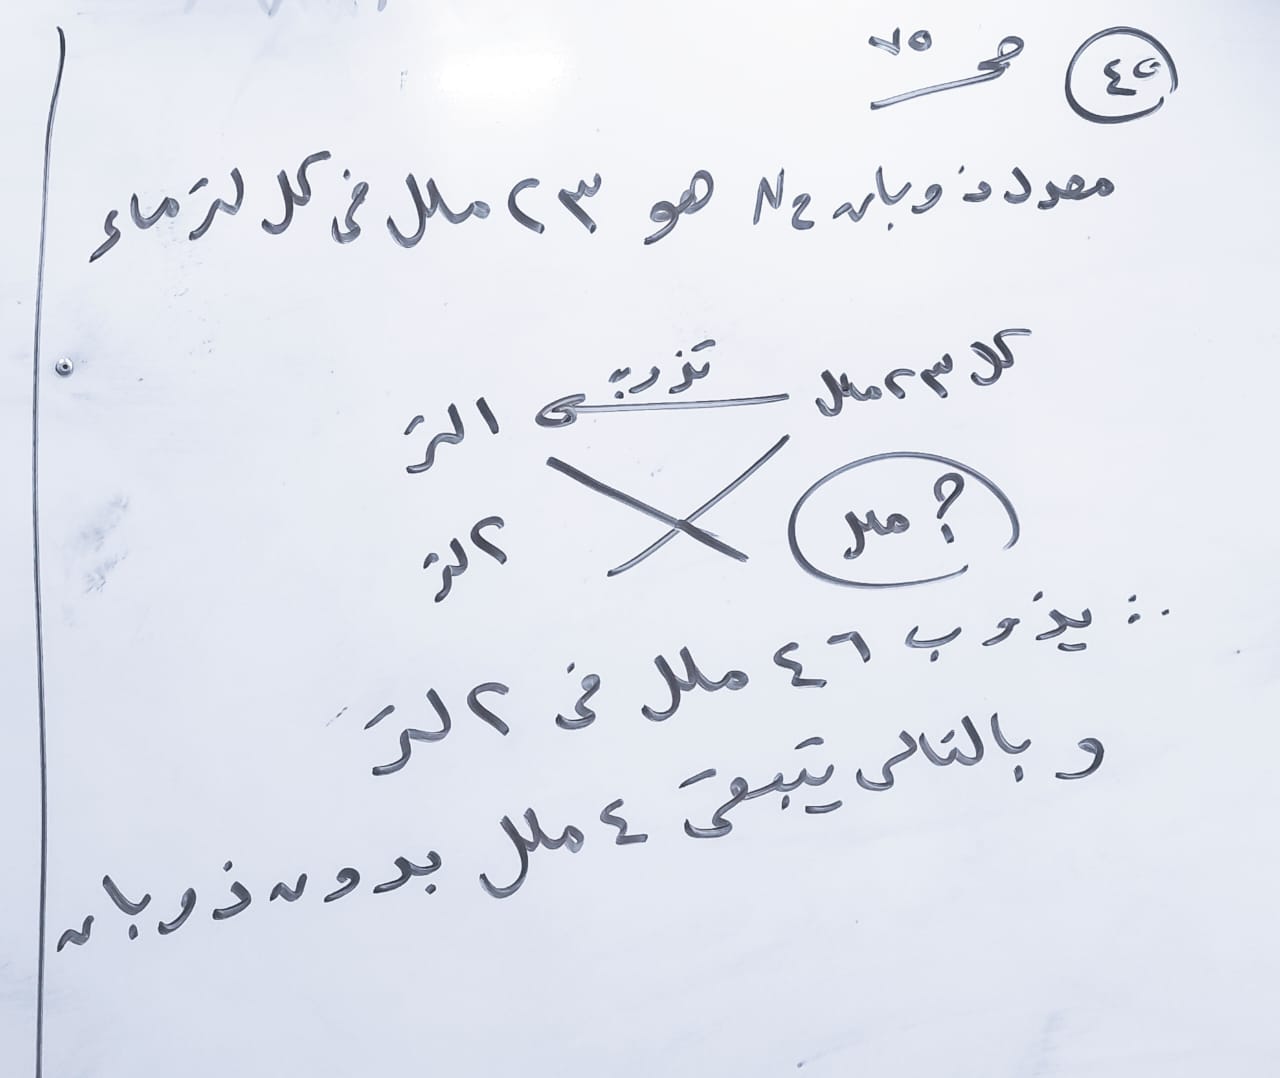 ٤٩ صـ ٧٥
معدل ذوبان N₂ هو ٢٣ ملل فى كل لتر ماء
كل ٢٣ ملل تذوب فى ١ لتر
؟ ملل ٢ لتر
∴ يذوب ٤٦ ملل فى ٢ لتر
و بالتالى يتبقى ٤ ملل بدون ذوبان